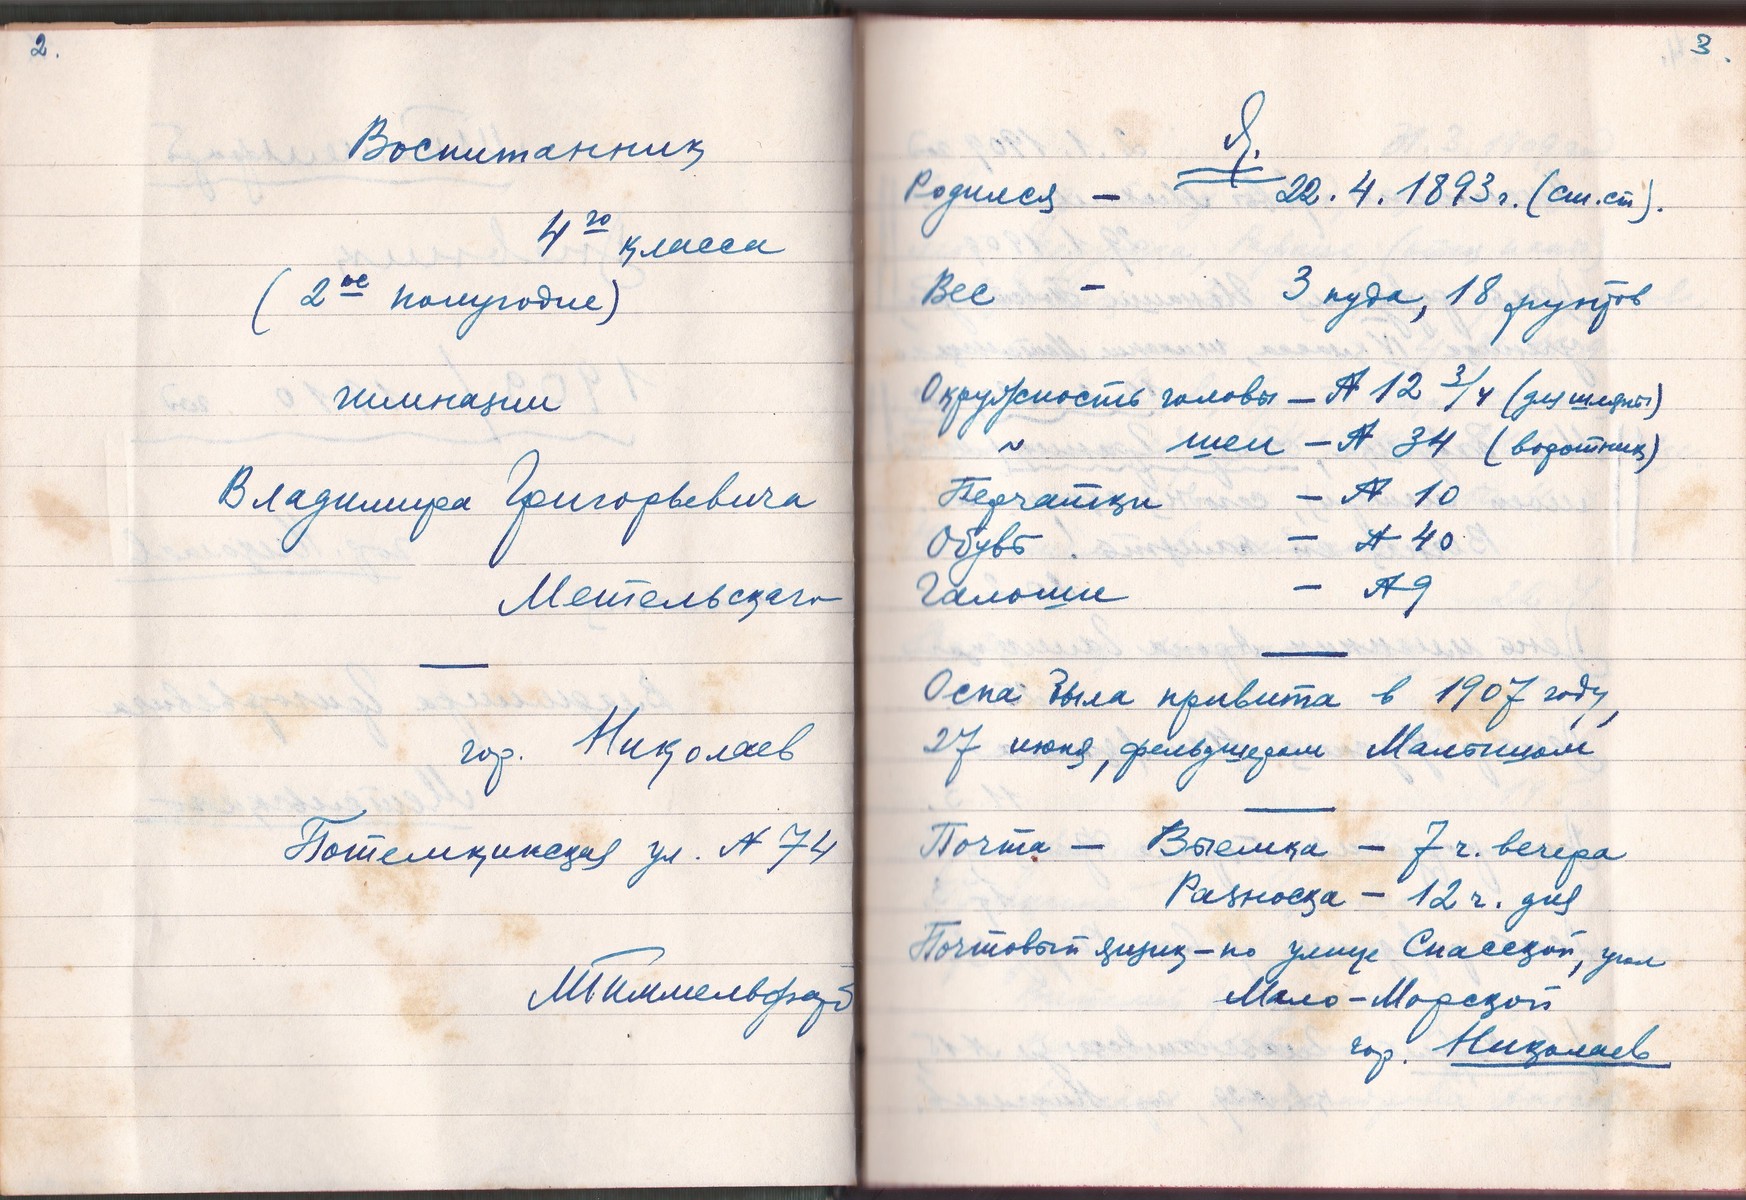 2.
Воспитанник
4го класса
(2ое полугодие)
гимназии
Владимира Григорьевича
Метельскаго
гор. Николаев
Потемкинская ул. № 74
3.
Я.
Родился — 22.4.1893 г. (ст. ст).
Вес - 3 пуда, 18 фунтов
Окружность головы — № 12 3/4 (для шляпы)
~ шеи — № 34 (воротник)
Перчатки — № 10
Обувь — № 40
Галоши — № 9
Оспа была привита в 1907 году,
27 июня, фельдшером
Почта — Выемка — 7 ч. вечера
Разноска — 12 ч. дня
Почтовый ящик — по улице Спасской, угол
Мало-Морской
гор. Николаев